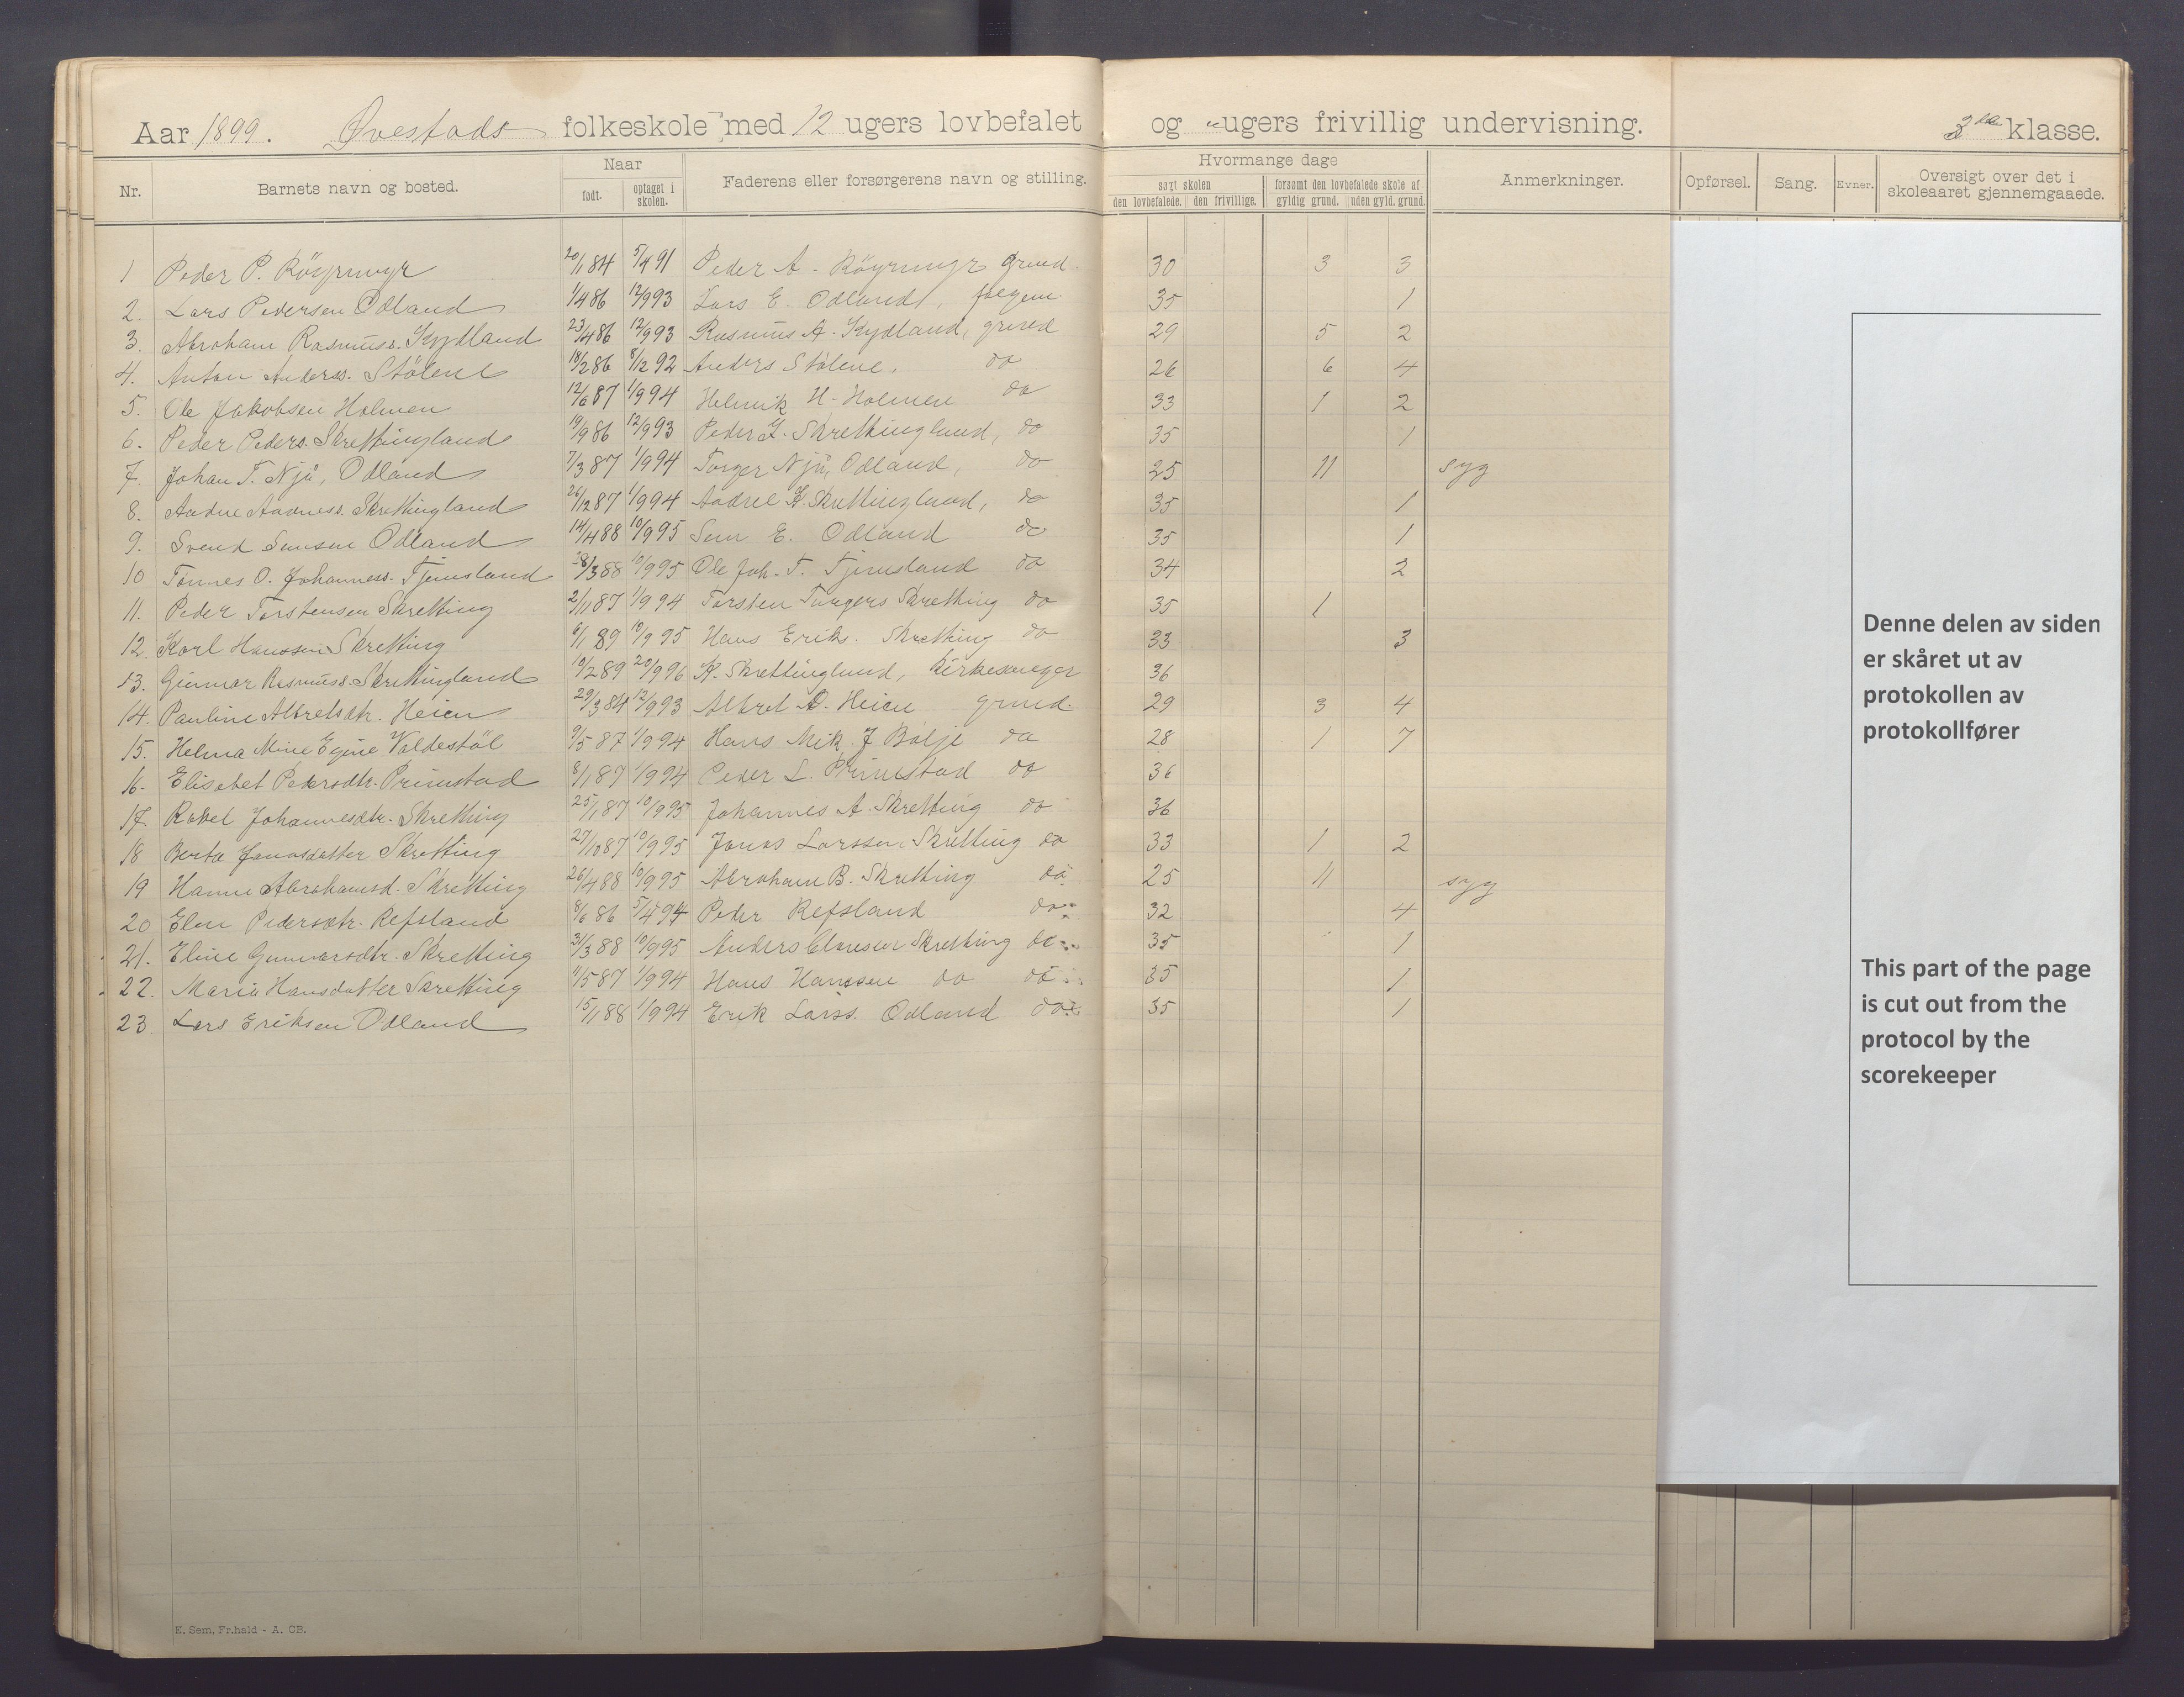 Aar 1899. Øvestads folkeskole med 12 ugers lovbefalet og " ugers frivillig undervisning. 3die klasse.
Nr. Barnets navn og bosted. Naar født. optaget i skolen. Faderens eller forsørgerens navn og stilling. Hvormange dage søgt skolen den lovbefalede. den frivillige. forsømt den lovbefalede skole af gyldig grund. uden gyld. grund. Anmerkninger. Opførsel. Sang. Evner. Oversigt over det i skoleaaret gjennemgaaede.
1 Peder P. Röyrmyr 20/1 84 5/4 91 Peder A. Röyrmyr grmd. 30 3 3
2. Lars Pedersen Odland 1/4 86 12/9 93 Lars E. Odland, 35 1
3. Abraham Rasmuss. Kydland 23/4 86 12/9 93 Rasmus A. Kydland, grmd 29 5 2
4. Anton Anderss. Stölene 18/2 86 8/12 92 Anders Stölene, do 26 6 4
5. Ole Jakobsen Holmen 12/6 87 1/9 94 Helmik H. Holmen do 33 1 2
6. Peder Peders. Skrettingland 19/9 86 12/9 93 Peder J. Skrettingland, do 35 1
7. Johan T. Njå, Odland 7/3 87 1/9 94 Torger Njå, Odland, do 25 11 syg
8. Aadne Aadness. Skrettingland 26/12 87 1/9 94 Aadne K. Skrettingland, do 35 1
9. Svend Semsen Odland 14/4 88 10/9 95 Sem E. Odland do 35 1
10 Tønnes O. Johanness. Tjemsland 28/3 88 10/9 95 Ole Joh. T. Tjemsland do 34 2
11. Peder Torstensen Skretting 2/11 87 1/9 94 Torsten Torgers Skretting do 35 1
12. Karl Hanssen Skretting 6/1 89 10/9 95 Hans Eriks. Skretting do 33 3
13. Gunnar Rasmuss. Skrettingland 10/2 89 20/9 96 R. Skrettingland, kirkesanger 36
14. Pauline Albretsdtr. Heien 29/3 84 12/9 93 Albret O. Heien grmd. 29 3 4
15. Helma Mine Egine Valdestöl 9/5 87 1/9 94 Hans Mik. J Bölje do 28 1 7
16. Elisabet Pedersdtr. Primstad 8/1 87 1/9 94 Peder L. Primstad do 36
17. Rakel Johannesdtr. Skretting 25/1 87 10/9 95 Johannes A. Skretting do 36
18 Berta Jonasdatter Skretting 27/10 87 10/9 95 Jonas Larssen Skretting do 33 1 2
19 Hanne Abrahamsd. Skretting 26/4 88 10/9 95 Abraham B. Skretting do 25 11 syg
20 Elen Pedersdtr. Refsland 8/6 86 5/4 94 Peder Refsland do 32 4
21. Eline Gunnarsdtr. Skretting 31/3 88 10/9 95 Anders Skretting do 35 1
22. Maria Hansdatter Skretting 11/5 87 1/9 94 Hans Hanssen do do 35 1
23 Lars Eriksen Odland 15/1 88 1/9 94 Erik Larss. Odland do 35 1
Denne delen av siden
er skåret ut av
protokollen av
protokollfører
This part of the page
is cut out from the
protocol by the
scorekeeper
K. Sem. Fr.hald - A. OB.